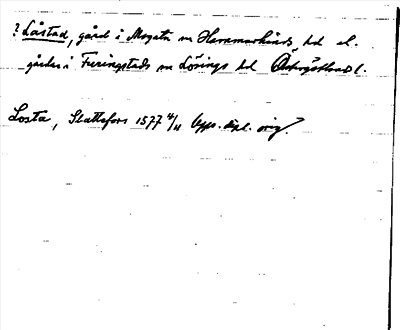 ? Låstad, gård i Mogata sn Hammarkinds hd el.
gårdar i Furingstads sn Lösings hd Östergötland l.
Losta, Slattefors 1577 4/11 Upps. dipl. orig.